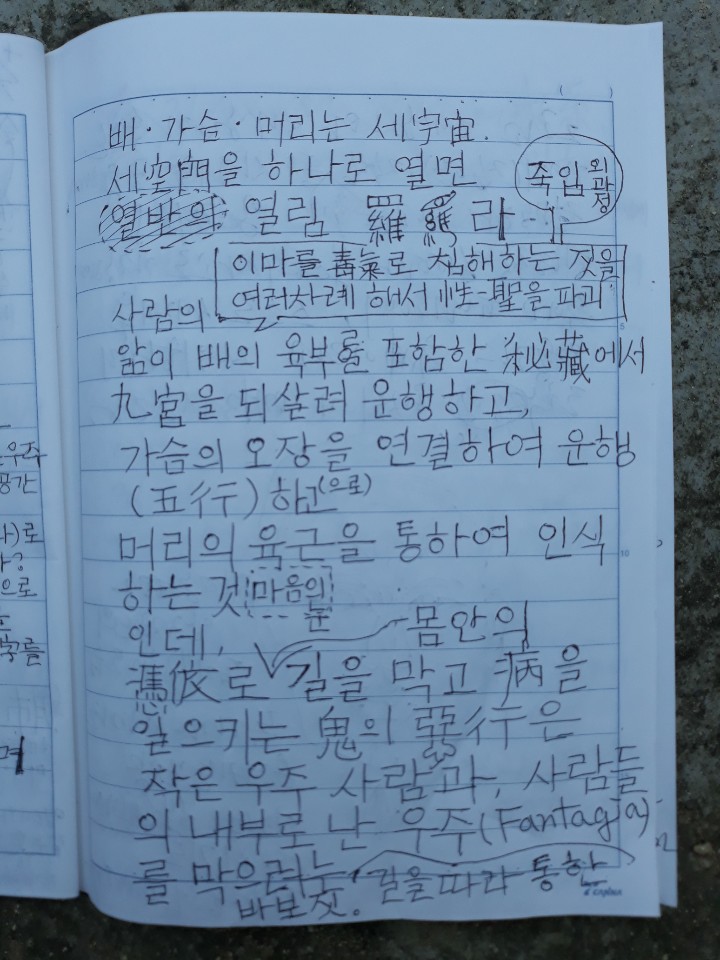 배·가슴·머리는 세宇宙.
세空門을 하나로 열면
죽임
외과정
열반의 열림 羅 라
이마를 毒氣로 침해하는 것을
여러차례 해서 性-聖을 파괴
사람의
앎이 배의 육부를 포함한 秘藏에서
九宮을 되살려 운행하고,
가슴의 오장을 연결하여 운행
(五行)하고(으로)
머리의 육근을 통하여 인식
하는 것 마음의
눈
인데,
몸안의
憑依로 길을 막고 病을
일으키는 鬼의 惡行은
작은 우주 사람과, 사람들
의 내부로 난 우주(Fantagia)
를 막으려는 길을 따라 통한
바보짓.
우주
공간
)로
?
으로
를
며